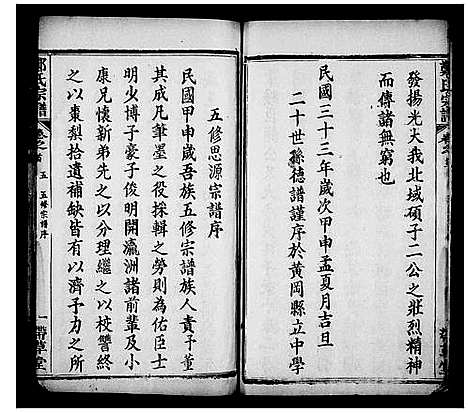 發揚光大我北域碩子二公之壯烈精神
而傳諸無窮也
民國三十三年歲次甲申孟夏月吉旦
二十世孫德譜謹序於黃岡縣立中學
五修思源宗譜序
民國甲申歲吾族五修宗譜族人責予董
其成凡筆墨之役採輯之勞則為佑臣士
明少博子豪子俊明開瀛洲諸前輩及小
康兄懷新弟先之以分理繼之以校讐終
之以棗梨拾遺補缺皆有以濟予力之所
鄭氏宗譜
卷之首
五
五修宗譜序
一
帶草堂